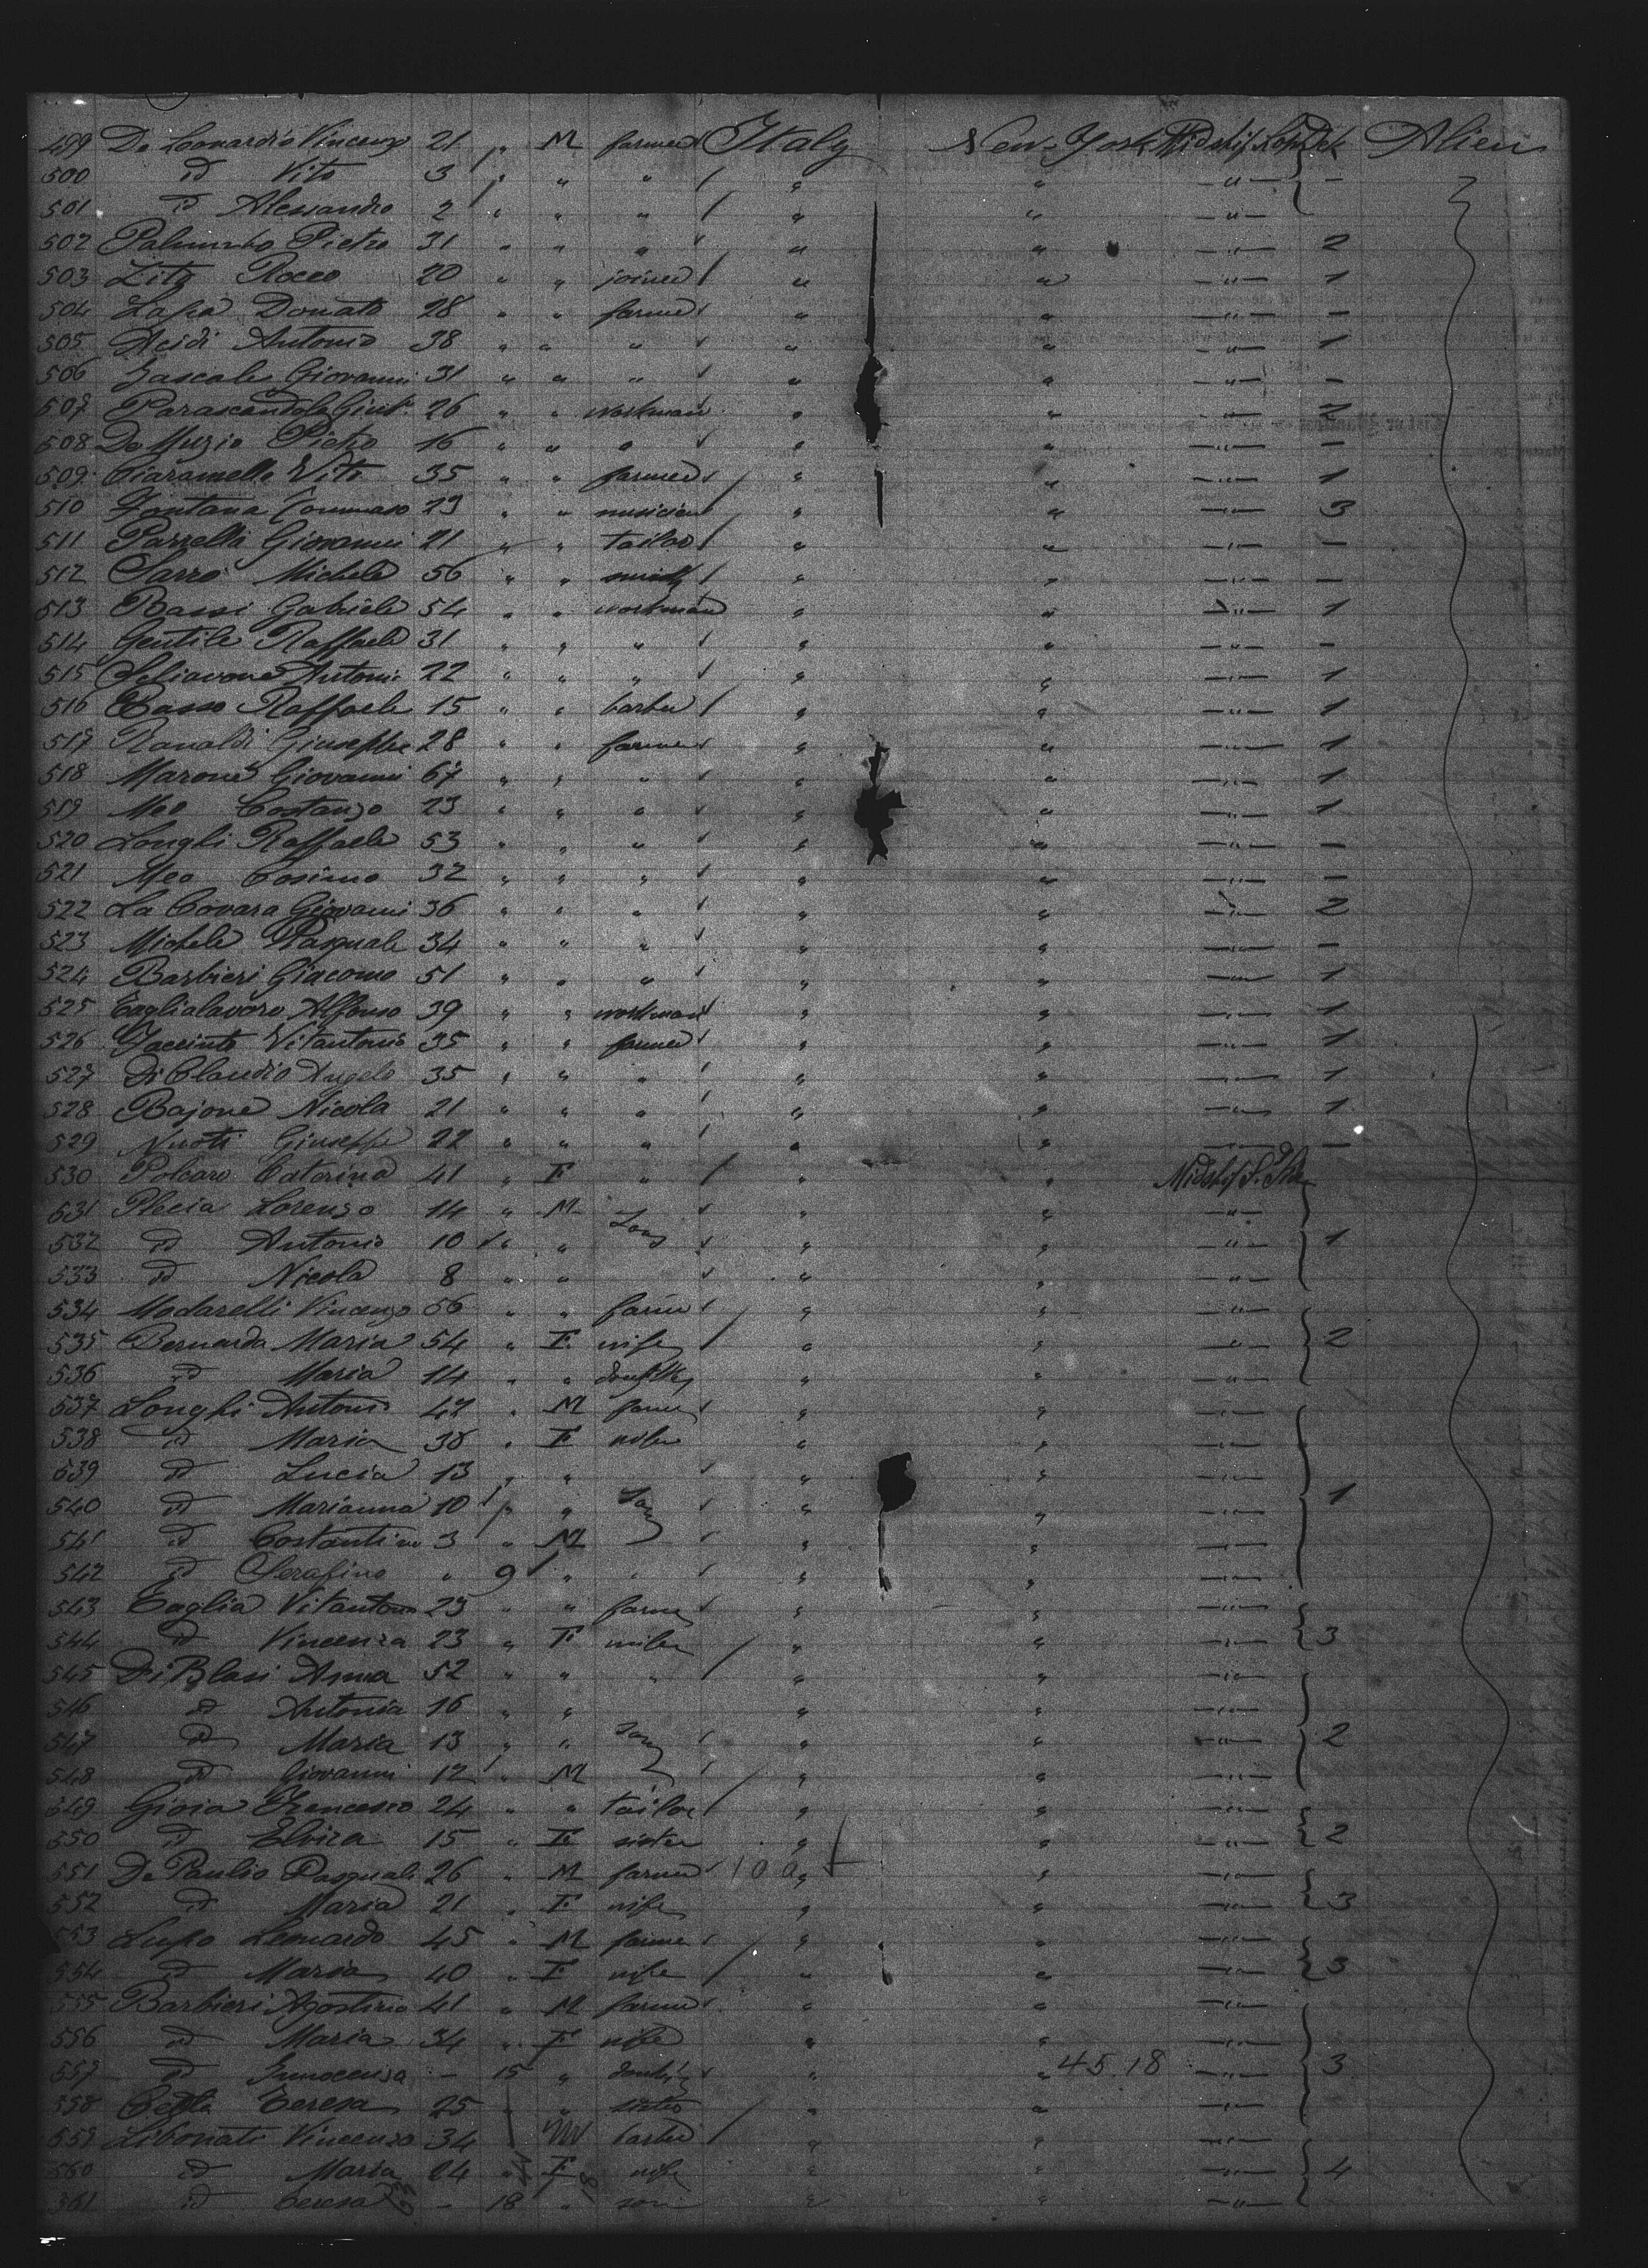 499 De Leonardis Vincenzo 21 " M farmer Italy New-York Midship Alien
500 id Vito 3 " " " " " -"- -
501 id Alessandro 2 " " " " " -"-
502 Palumbo Pietro 31 " " " " " -"- 2
503 Lita Rocco 20 " " joiner " " -"- 1
504 Lapa Donato 28 " " farmer " " -"- -
505 Acidi Antonio 38 " " " " " -"- 1
506 Giovanni 31 " " " " " -"- -
507 Parascandola 26 " " workman " " -"- 2
508 De Muzio Pietro 16 " " " " " -"- -
509 Ciaramella Vito 35 " " farmer " " -"- 1
510 Fontana Tommaso 23 " " musician " " -"- 3
511 Parrella Giovanni 21 " " tailor " " -"- -
512 Sarro Michele 56 " " smith " " -"- -
513 Bassi Gabriele 54 " " workman " " -"- 1
514 Gentile Raffaele 31 " " " " " -"- -
515 Schiavone Antoni 22 " " " " " -"- 1
516 Raffaele 15 " " barber " " -"- 1
517 Ranaldi Giuseppe 28 " " farmer " " -"- 1
518 Marone Giovanni 67 " " " " " -"- 1
519 Meo Costanzo 23 " " " " " -"- 1
520 Longhi Raffaele 53 " " " " " -"- -
521 Meo Cosimo 32 " " " " " -"- -
522 La Covara Giovanni 36 " " " " " -"- 2
523 Michele Pasquale 34 " " " " " -"- -
524 Barbieri Giacomo 51 " " " " " -"- 1
525 Taglialavoro Alfonso 39 " " workman " " -"- 1
526 Jaccinto Vitantonio 35 " " farmer " " -"- 1
527 Di Claudio Angelo 35 " " " " " -"- 1
528 Bajone Nicola 21 " " " " " -"- 1
529 Giuseppe 22 " " " " " -"- -
530 Polcaro Caterina 41 " F " " " Midship
531 Plecia Lorenzo 14 " M " " -"-
532 id Antonio 10 " " " " -"- 1
533 id Nicola 8 " " " " -"-
534 Modarelli Vincenzo 56 " " farmer " " -"-
535 Bernarda Maria 54 " F. wife " " " 2
536 id Maria 14 " " " " -"-
537 Longhi Antoni 42 " M farmer " " -"-
538 id Maria 38 " F wife " " -"-
539 id Lucia 13 " " " " -"-
540 id Marianna 10 " " " " -"- 1
541 id Costantino 3 " M " " -"-
542 id Serafino " 9 " " " " -"-
543 Taglia Vitantonio 23 " " farmer " " -"-
544 id Vincenza 23 " F wife " " -"- 3
545 Di Blasi Anna 52 " " " " " -"-
546 id Antonia 16 " " " " -"-
547 id Maria 13 " " " " -"- 2
548 id Giovanni 12 " M " " -"-
549 Gioia Francesco 24 " " tailor " " -"-
550 id Elvira 15 " F sister " " -"- 2
551 De Paulio Pasquale 26 " M farmer " " -"-
552 id Maria 21 " F wife " " -"- 3
553 Lupo Leonardo 45 " M farmer " " -"-
554 id Maria 40 " F wife " " -"- 3
555 Barbieri Agostino 41 " M farmer " " -"-
556 id Maria 34 " F wife " " -"-
557 id Innocenza - 15 " " " 45.18 -"- 3
558 Teresa 25 " " sister " " -"-
559 Libonati Vincenzo 34 M barber " " -"-
560 id Maria 24 " F wife " " -"- 4
561 id Teresa - 18 " " " -"-